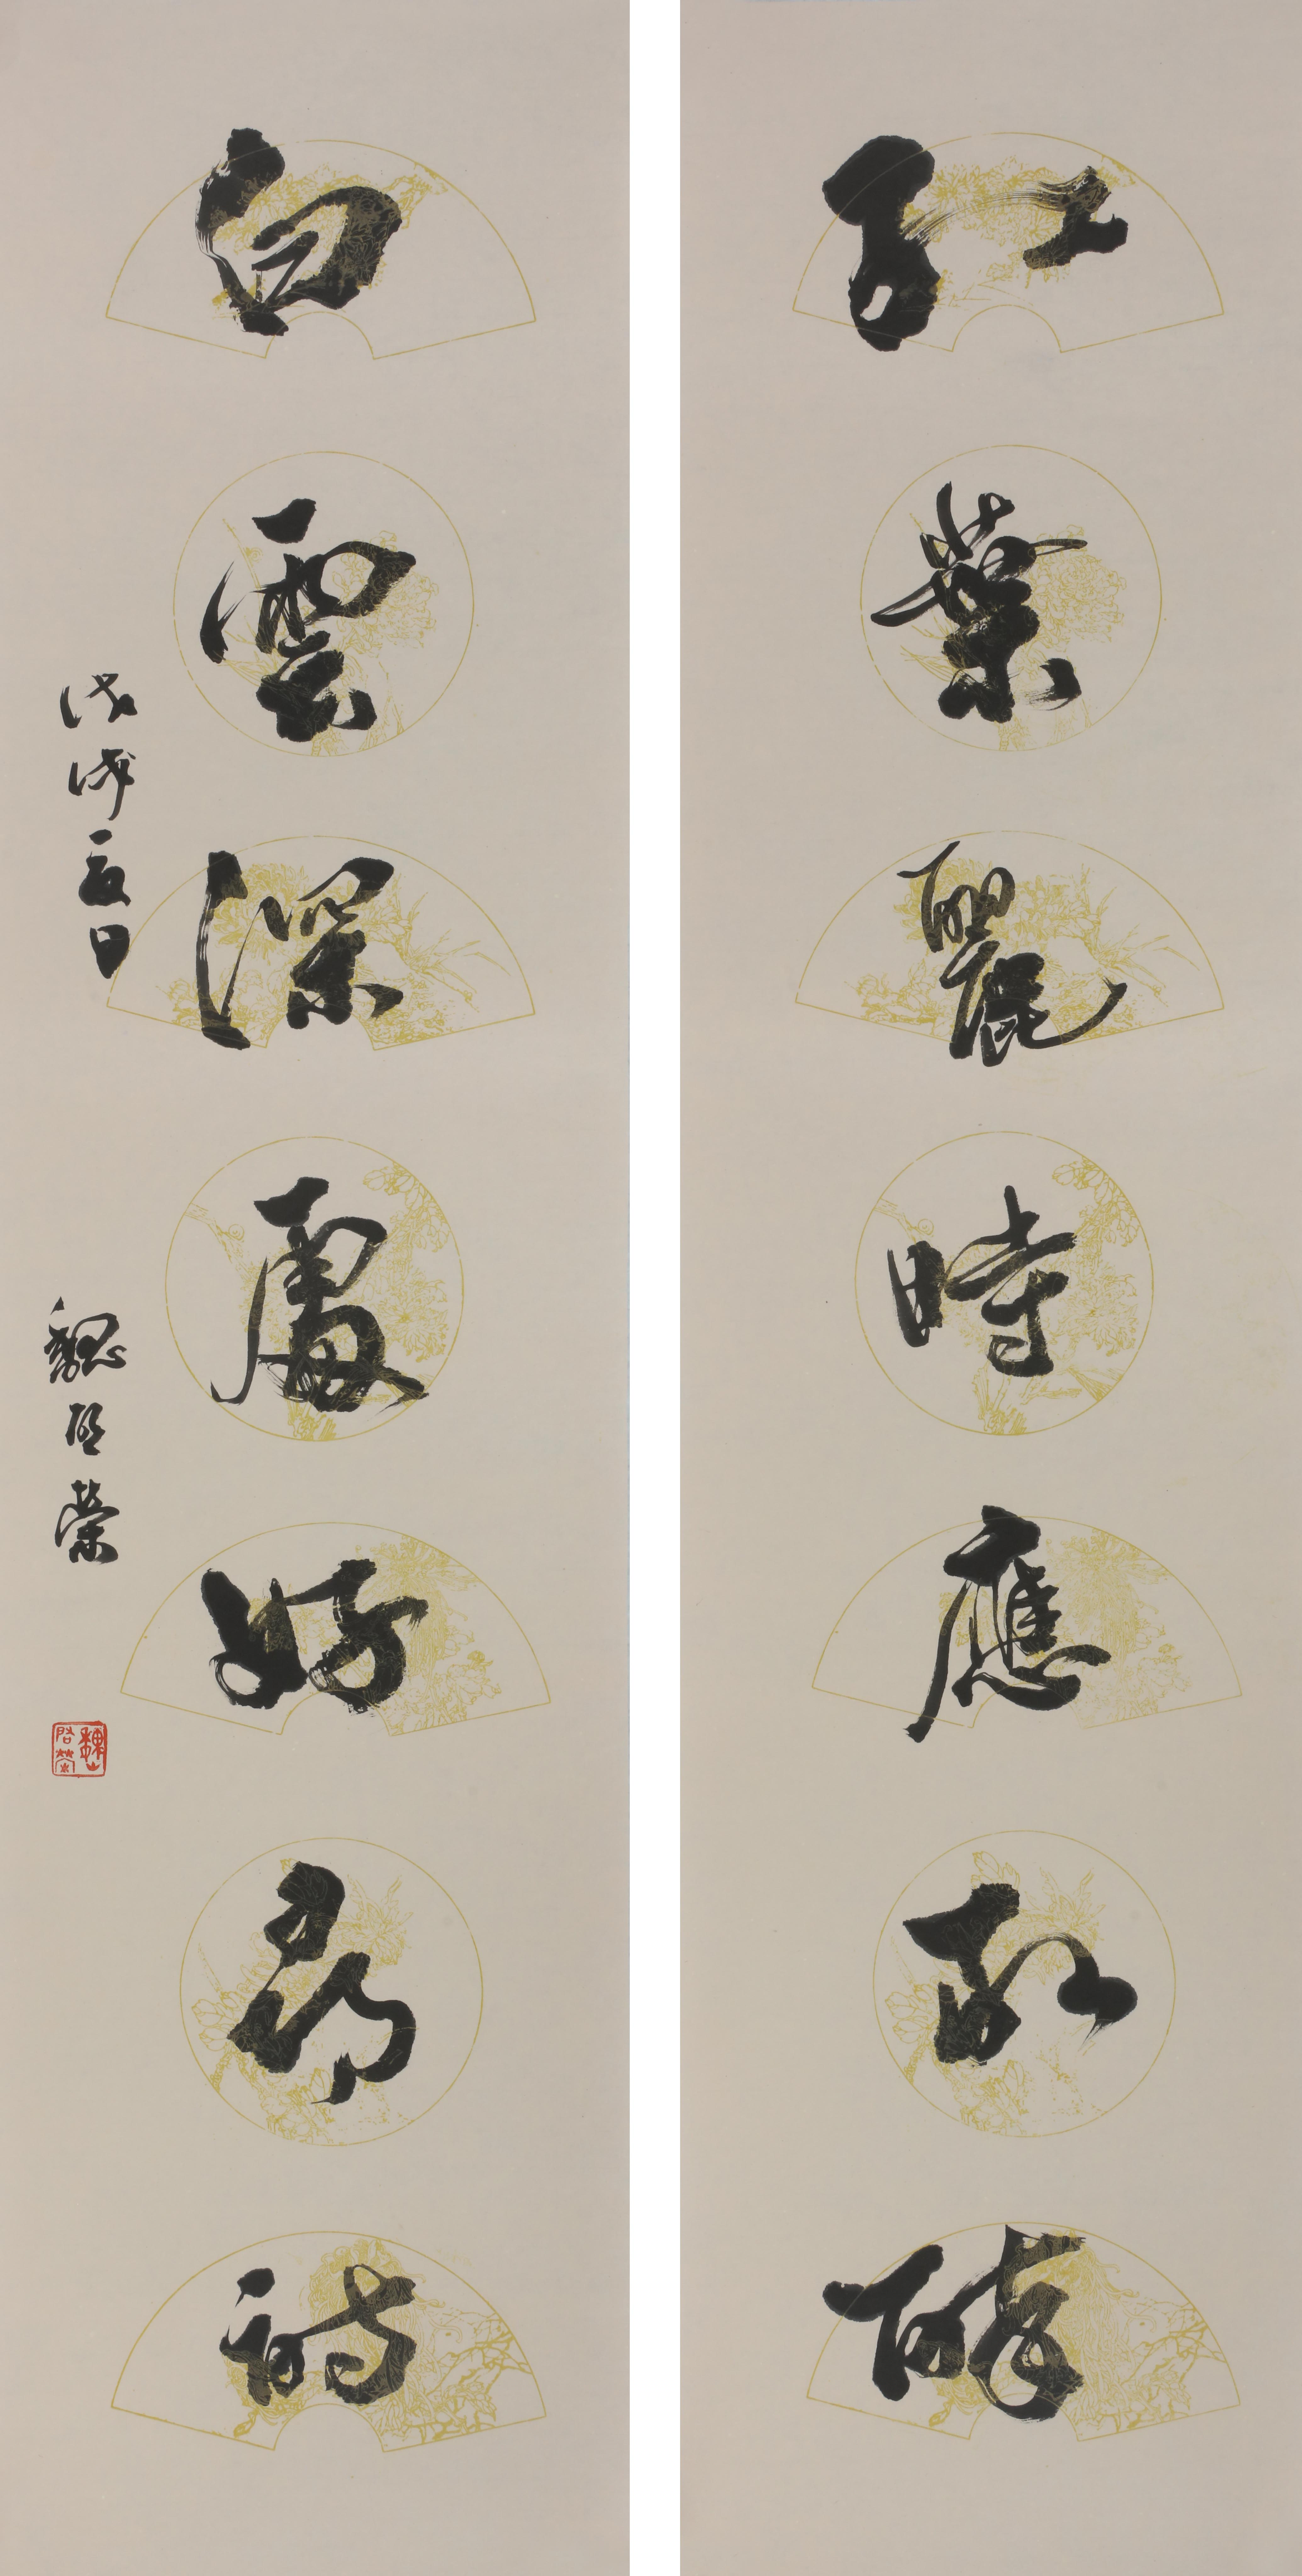 紅葉麗時應取醉
白雲深處好尋詩
戊戌夏日
魏启榮
魏启榮